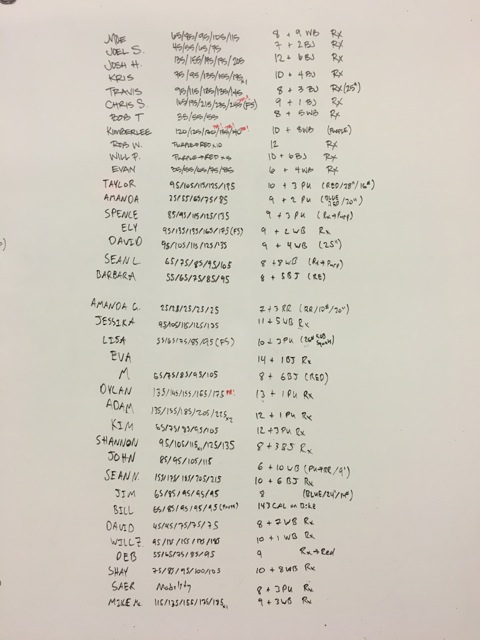 MOE 65/85/95/105/115 8 + 9 WB Rx
JOEL S. 45/55/65/75 7 + 2 BJ Rx
JOSH H. 135/155/175/195/205 12 + 6 BJ Rx
KRIS 75/95/135/155/175x1 10 + 4 BJ Rx
TRAVIS 95/115/125/135/145 8 + 3 BJ Rx/(25#)
CHRIS S. 165/195/215/235/255 (FS) 9 + 1 BJ Rx
BOB T 35/55/55 8 + 5 WB Rx
KIMBERLEE 120/125/ 10 + 8WB (PURPLE)
ROB W. PURPLE+REDx10 12 Rx
WILL P. PURPLE+RED x5 10 + 6 BJ Rx
EVAN 55/55/65/75/85 6 + 4 WB Rx
TAYLOR 95/105/115/125/135 10 + 3 PU (RED/28"/16#)
AMANDA 35/55/65/75/85 9 + 2 PU (BLUE RED/20")
SPENCE 85/95/115/125/135 9 + 3 PU (Rx+Purp)
ELY 95/135/155/165/175 (FS) 9 + 2 WB Rx
DAVID 95/105/115/125/135 9 + 4 WB (25")
SEAN L. 65/75/85/95/65 8 +8 WB (Rx+Purp)
BARBARA 55/65/75/85/95 8 + 5BJ (RE)
AMANDA G. 25/25/25/25/25 7 + 3 RR (RR/10#/20")
JESSIKA 95/105/115/125/135 11 + 5 WB Rx
LISA 55/65/75/85/95 (FS) 10 + 3PU
EVA 14 + 1BJ Rx
M 65/75/85/95/105 8 + 6BJ (RED)
DYLAN 135/145/155/165/175 PR! 13 + 1 PU Rx
ADAM 135/155/185/205/225x2 12 + 1 PU Rx
KIM 65/75/85/95/105 12 +3PU Rx
SHANNON 95/105/115/125/135 8 + 3 BJ Rx
JOHN 85/95/105/115 6 + 10 WB (PU+RR/9')
SEAN N. 155/175/185/205/215 10 + 6 BJ Rx
JIM 65/85/95/95/95 8 (BLUE/24"/14#)
BILL 65/85/95/95/95 143 CAL on Bike
DAVID 45/65/75/75/75 8 + 7 WB Rx
WILL Z. 95/135/155/175/185 10 + 1 WB Rx
DEB 55/65/75/85/95 9 Rx+Red
SHAY 75/85/95/100/105 10 + 8WB Rx
SAER Mobility 8 + 3 PU Rx
MIKE M. 115/135/155/175/195x1 9 + 3 WB Rx